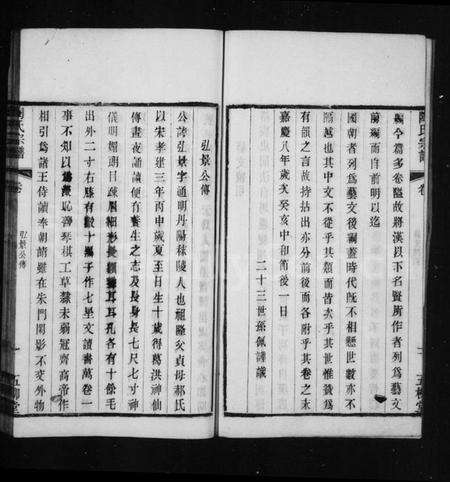 編今篇多卷隘故將漢以下名賢所作者列爲藝文
前編而自前明以迄
國朝者列爲藝文後編蓋時代旣不相懸世數亦不
隔越也其中文不從乎其類而皆次乎其世惟箴爲
有韻之言故特拈出亦分前後而各附乎其卷之末
嘉慶八年歲次癸亥中和節後一日
二十三世孫佩謹識
陶氏宗譜
卷
五柳堂
弘景公傳
公諱弘景字通明丹陽秣陵人也祖隆父貞母郝氏
以宋孝建三年丙申歲夏至日生十歲得葛洪神仙
傳晝夜誦讀便有養生之志及長身長七尺七寸神
儀明媚朗目疎眉細形長額聳耳耳孔各有十餘毛
出外二寸右膝有數十黑子作七星文讀書萬卷一
事不知以爲深恥善琴棋工草隸未弱冠齊高帝作
相引爲諸王侍讀奉朝請雖在朱門閉影不交外物
陶氏宗譜
卷
弘景公傳
一
五柳堂